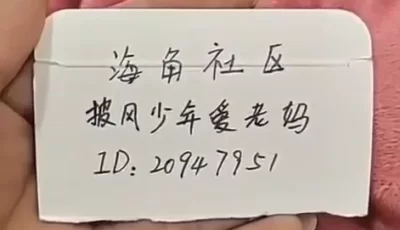 海角社区
披风少年爱老妈
ID: 20947951